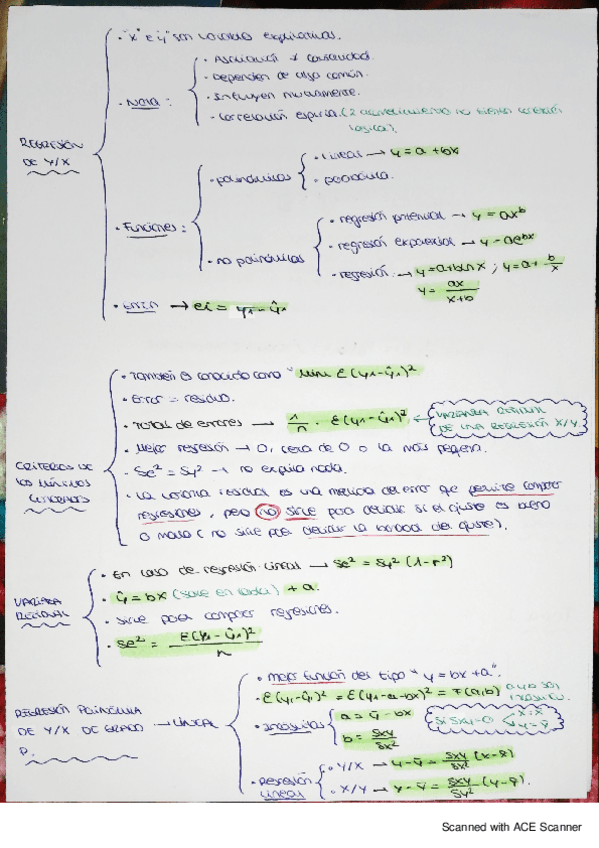 · "x" e "y" son variables explicativas.
REGRESIÓN DE Y/X
· Nota:
· Asociación ≠ causalidad.
· Dependen de algo común.
· Influyen mutuamente.
· Correlación espuria (2 acontecimientos no tienen correlación lógica).
· Funciones:
· polinómicas
· lineal → y = a + bx
· parábola.
· no polinómicas
· regresión potencial → y = ax^b
· regresión exponencial → y = ae^bx
· regresión → y = a + b ln x ; y = a + b/x
y = ax/(x+b)
· Error → ei = yi - ŷi
CRITERIOS DE LOS MÍNIMOS CUADRADOS
· También es conocido como "Min Σ(yi - ŷi)²
· Error = residuo.
· Total de errores → 1/n · Σ(yi - ŷi)² ← VARIANZA RESIDUAL DE UNA REGRESIÓN X/Y.
· Mejor regresión → 0, cerca de 0 o la más pequeña.
· Se² = Sy² → no explica nada.
· La varianza residual es una medida del error que permite comparar
regresiones, pero no sirve para decidir si el ajuste es bueno
o malo (no sirve para decidir la bondad del ajuste).
VARIANZA RESIDUAL
· En caso de regresión lineal → Se² = Sy² (1 - r²)
· ŷ = bx + a.
· Sirve para comparar regresiones.
· Se² = Σ(yi - ŷi)²/n
REGRESIÓN POLINÓMICA DE Y/X DE GRADO P. → LINEAL
· Mejor función del tipo "y = bx + a".
· Σ(yi - ŷi)² = Σ(yi - a - bx)² = F(a,b) a y b son incógnitas.
· Incógnitas
a = ȳ - bx̄
b = Sxy/Sx²
Si Sxy = 0
x = x̄
y = ȳ
· Regresión lineal
· Y/X → y - ȳ = Sxy/Sx² (x - x̄)
· X/Y → x - x̄ = Sxy/Sy² (y - ȳ).
Scanned with ACE Scanner